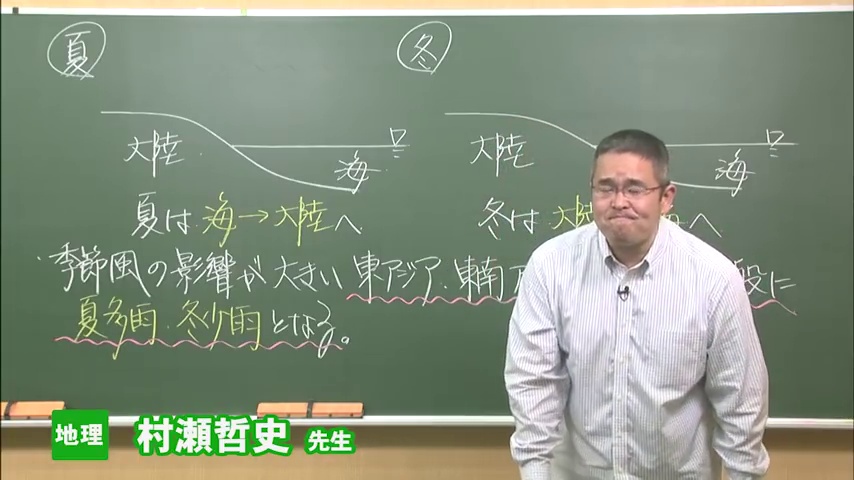 夏
冬
大陸
海
大陸
海
夏は 海→大陸へ
冬は 大陸 へ
季節風の影響が大きい 東アジア・東南ア 般に
夏多雨・冬少雨となる。
地理 村瀬哲史 先生